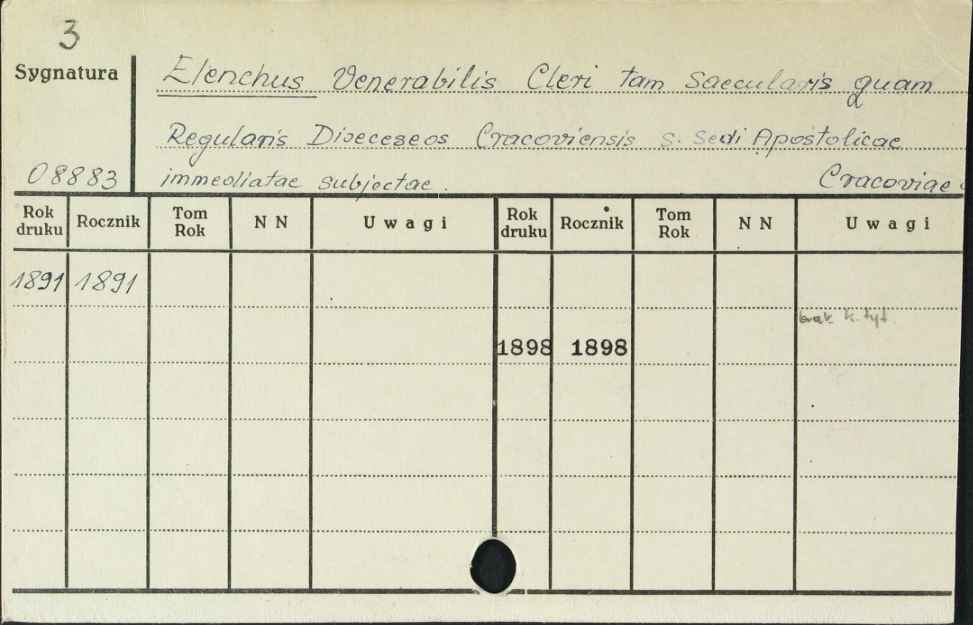 3
Sygnatura
Elenchus Venerabilis Cleri tam saecularis quam
Regularis Dioeceseos Cracoviensis s. Sedi Apostolicae
08883 immediatae subjectae. Cracoviae
Rok druku Rocznik Tom Rok N N Uwagi Rok druku Rocznik Tom Rok N N Uwagi
1891 1891
brak k. tyt
1898 1898